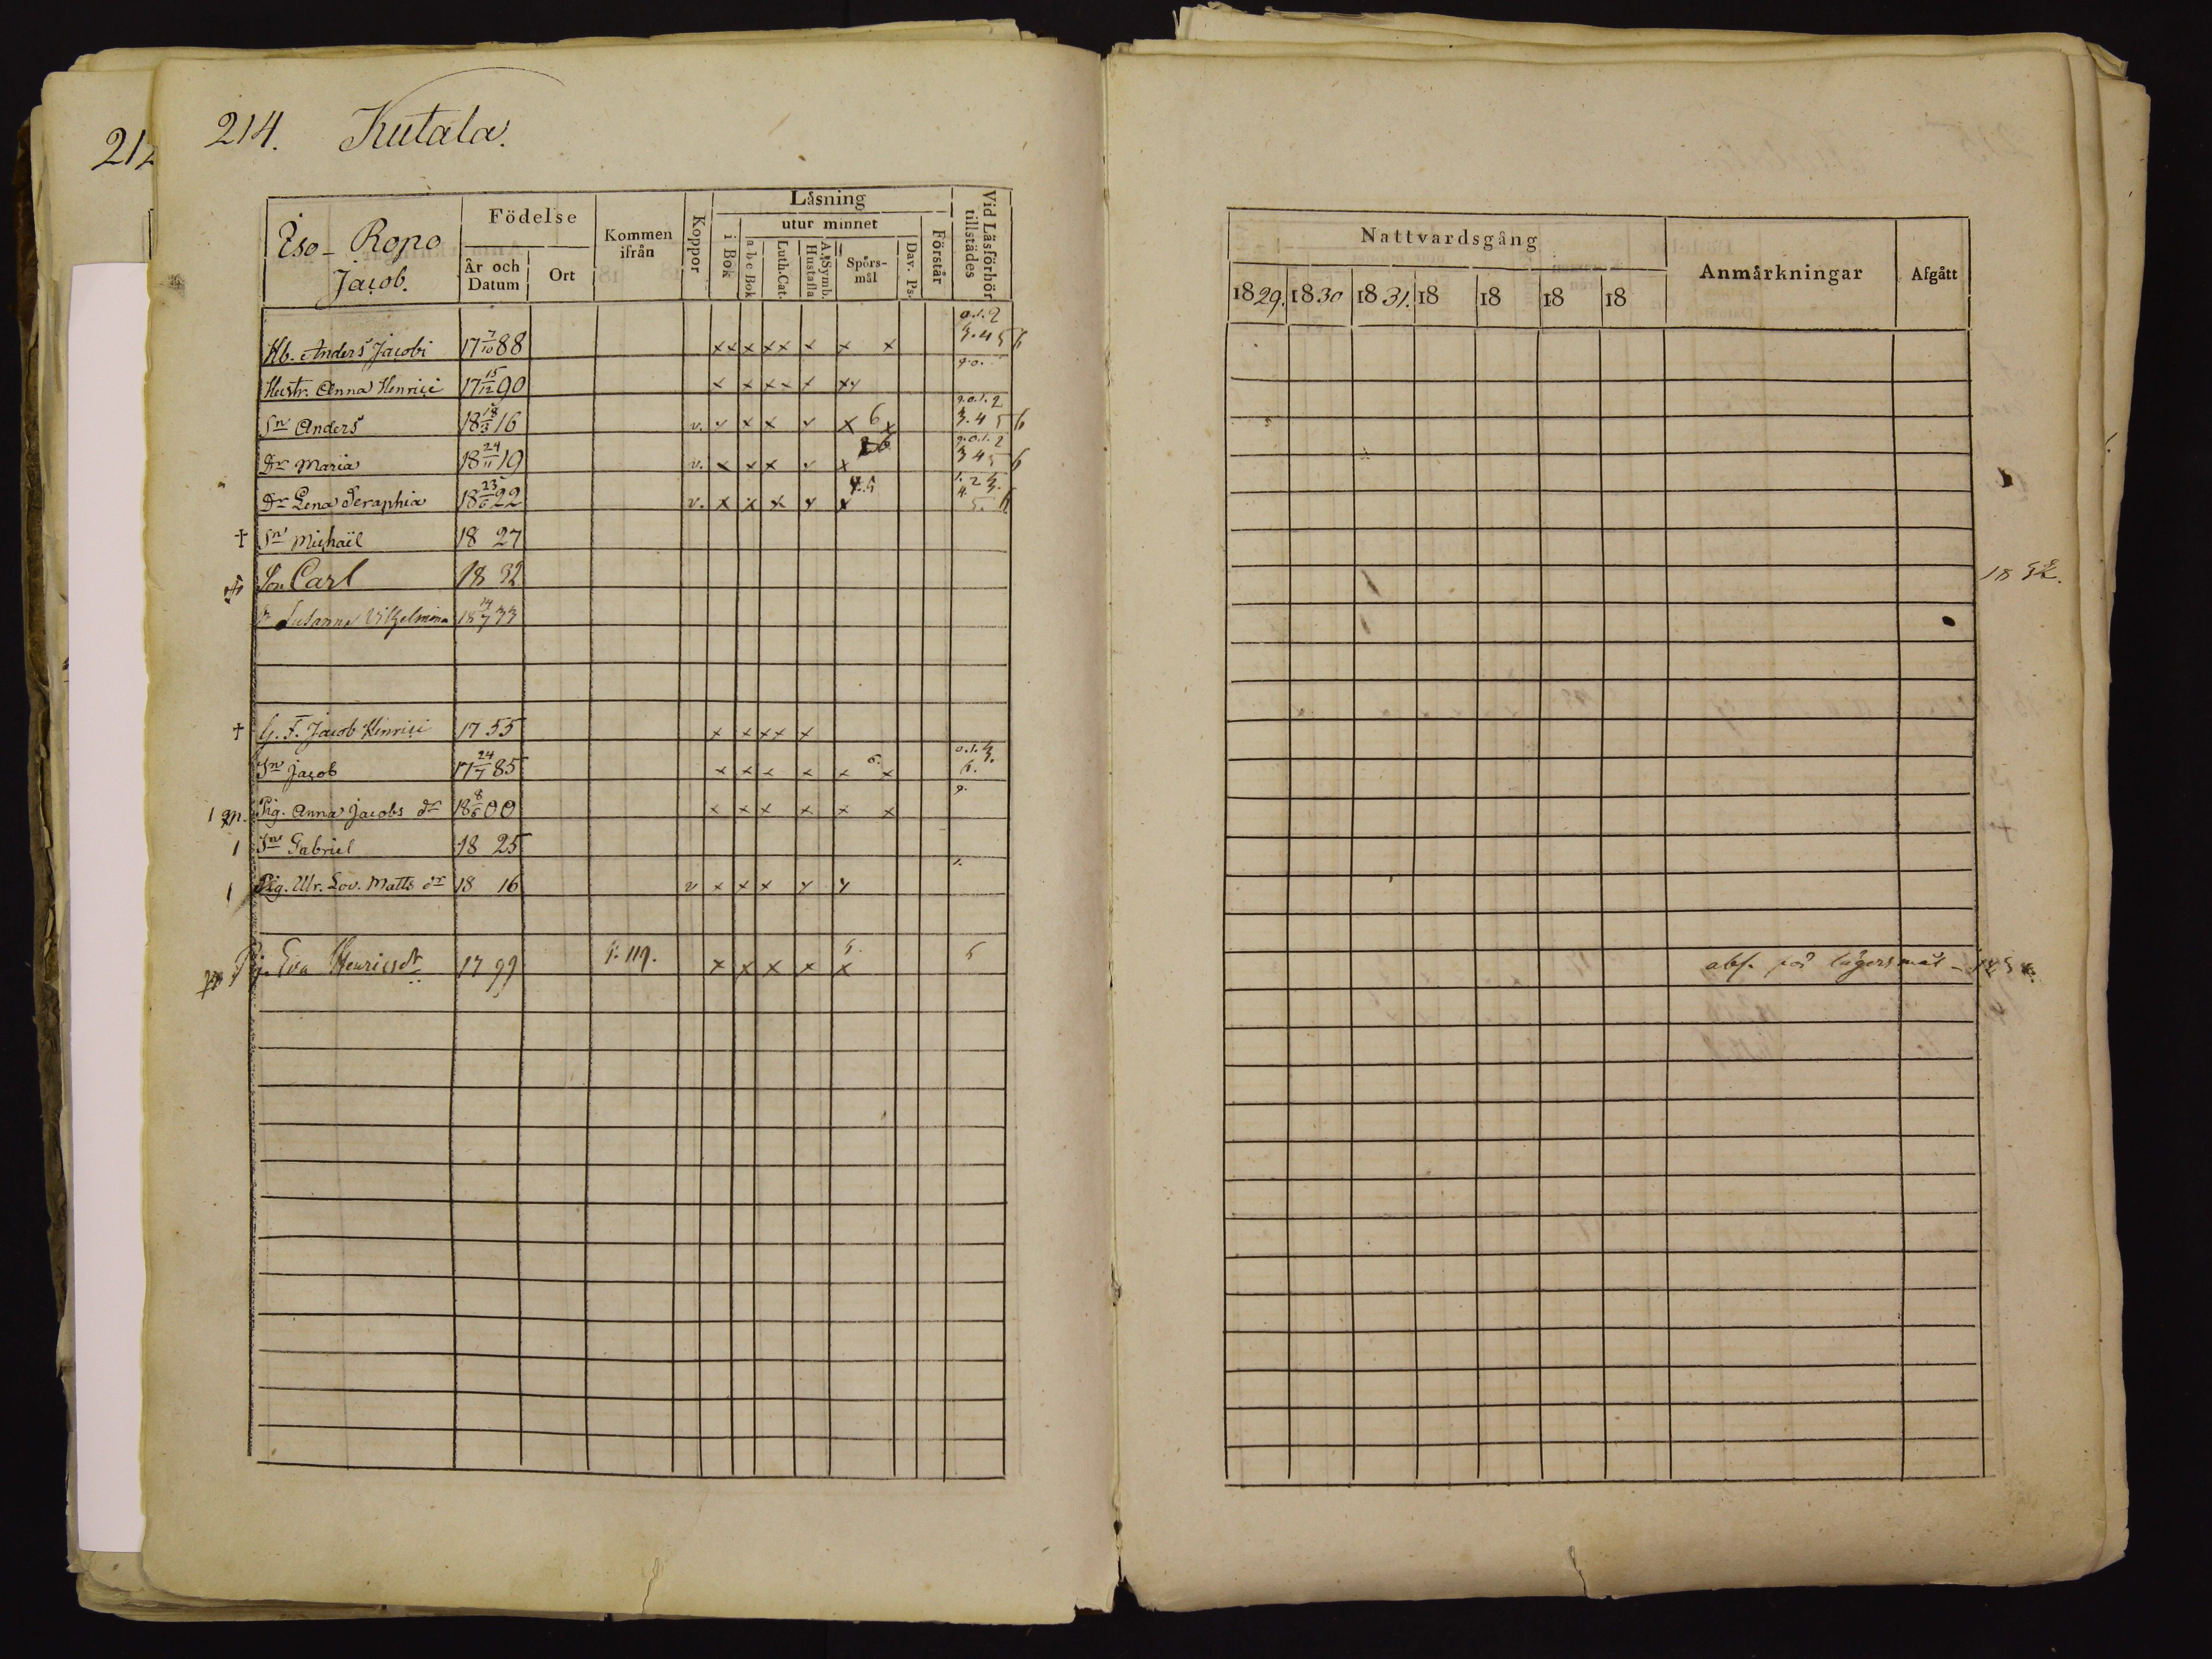 212
214. Kutala.
Iso-Ropo
Jacob.
Födelse
År och Datum
Ort
Kommen ifrån
Koppor
Låsning
i Bok
utur minnet
a b c Bok
Luth. Cat.
A. Symb. Hustafla
Spörs-mål
Dav. Ps.
Förstår
Vid Läsförhör tillstädes
Hb. Anders Jacobi 17 7/10 88 x x x x x x x x 0.1.2 3.4 5 6
Hustr. Anna Henrici 17 15/12 90 x x x x x x x 9.0.
Sn Anders 18 18/3 16 v. x x x x x 6 x 9.0.1.2 3.4 5 6
Dr Maria 18 24/11 19 v. x x x x x 9.0.1.2 3 4 5 6
Dr Lena Seraphia 18 23/6 22 v. x x x x x 4.5 1.2 3. 4. 5. 6
† Sn Michaël 18 27
Son Carl 18 32
Dr Susanna Vilhelmina 18 14/7 33
† G. F. Jacob Henrici 17 55 x x x x x
Sn Jacob 17 24/7 85 x x x x x 6. x 0.1.3. 6.
1 gn. Pig. Anna Jacobs dr 18 8/6 00 x x x x x x 9.
1 Sn Gabriel 18 25
1 Pig. Ulr. Lov. Matts dr 18 16 v x x x x x 1.
Pig. Eva Henricsdr 17 99 p. 119. x x x x x 5. 5
Nattvardsgång
1829. 1830 1831. 18 18 18 18
Anmärkningar
Afgått
18 32.
abs. för lägersmål